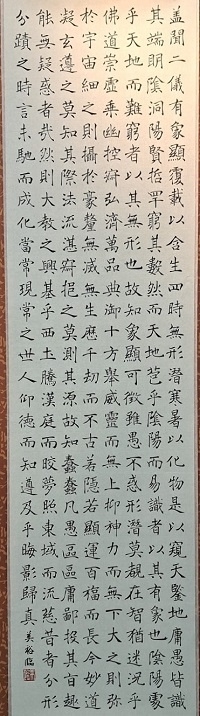 盖聞二儀有象顯覆載以含生四時無形潛寒暑以化物是以窺天鑒地庸愚皆識
其端明陰洞陽賢哲罕窮其數然而天地苞乎陰陽而易識者以其有象也陰陽處
乎天地而難窮者以其無形也故知象顯可徵雖愚不惑形潛莫覩在智猶迷況乎
佛道崇虛乘幽控寂弘濟萬品典御十方舉威靈而無上抑神力而無下大之則弥
於宇宙細之則攝於豪釐無滅無生歷千劫而不古若隱若顯運百福而長今妙道
凝玄遵之莫知其際法流湛寂挹之莫測其源故知蠢蠢凡愚區區庸鄙投其旨趣
能無疑惑者哉然則大教之興基乎西土騰漢庭而皎夢照東域而流慈昔者分形
分蹟之時言未馳而成化當常現常之世人仰德而知遵及乎晦影歸真